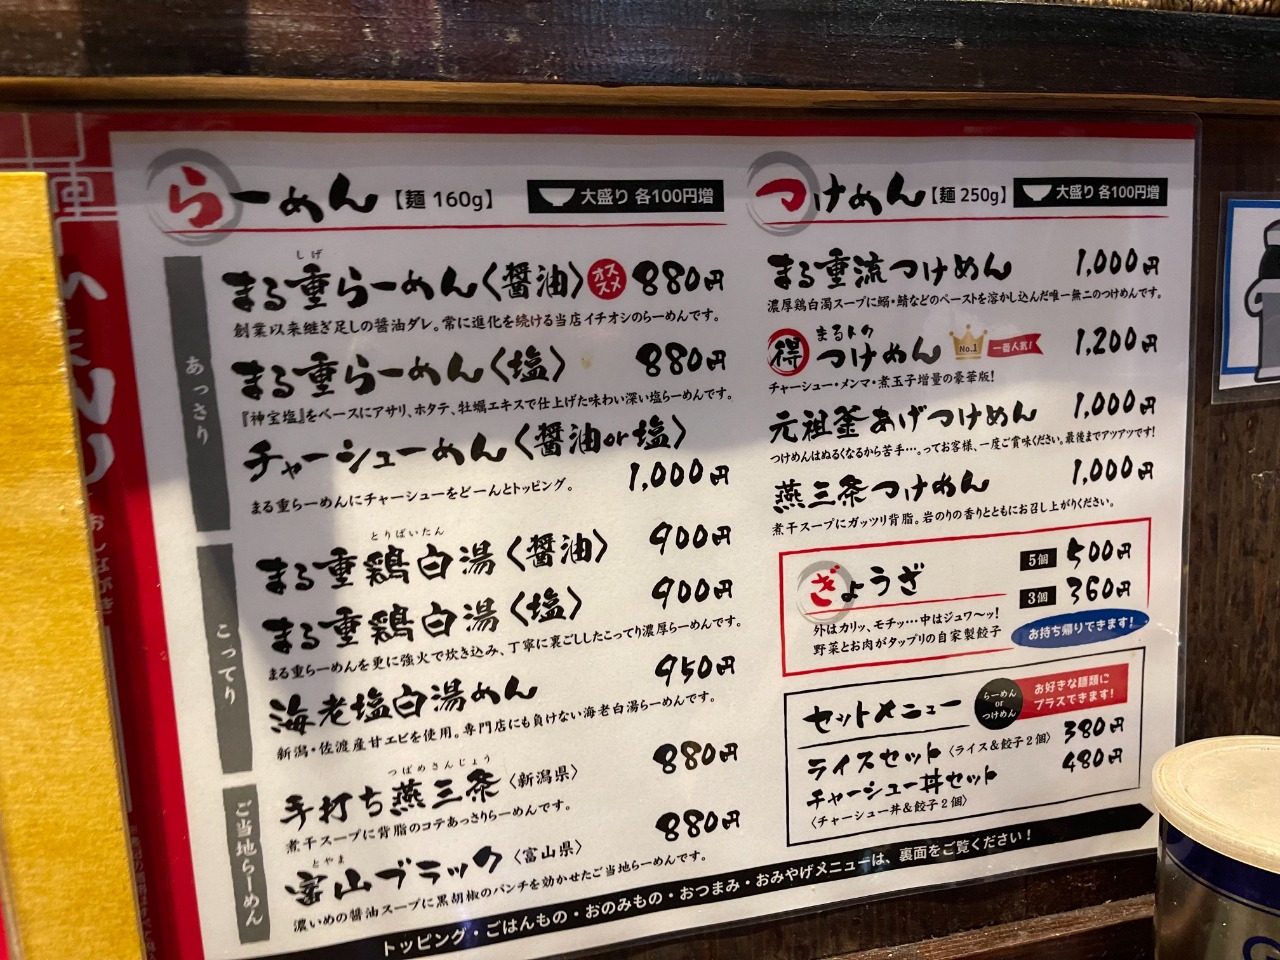 らーめん【麺 160g】
大盛り 各100円増
あっさり
まる重らーめん〈醤油〉 オススメ 880円
しげ
創業以来継ぎ足しの醤油ダレ。常に進化を続ける当店イチオシのらーめんです。
まる重らーめん〈塩〉 880円
『神宝塩』をベースにアサリ、ホタテ、牡蠣エキスで仕上げた味わい深い塩らーめんです。
チャーシューめん〈醤油or塩〉
1,000円
まる重らーめんにチャーシューをどーんとトッピング。
こってり
とりぱいたん
まる重鶏白湯〈醤油〉 900円
まる重鶏白湯〈塩〉 900円
まる重らーめんを更に強火で炊き込み、丁寧に裏ごししたこってり濃厚らーめんです。
海老塩白湯めん 950円
新潟・佐渡産甘エビを使用。専門店にも負けない海老白湯らーめんです。
ご当地らーめん
つばめさんじょう
手打ち燕三条〈新潟県〉 880円
煮干スープに背脂のコテあっさりらーめんです。
とやま
富山ブラック〈富山県〉 880円
濃いめの醤油スープに黒胡椒のパンチを効かせたご当地らーめんです。
つけめん【麺 250g】
大盛り 各100円増
まる重流つけめん 1,000円
濃厚鶏白濁スープに鰯・鯖などのペーストを溶かし込んだ唯一無二のつけめんです。
まるトク
得 つけめん No.1 一番人気! 1,200円
チャーシュー・メンマ・煮玉子増量の豪華版!
元祖釜あげつけめん 1,000円
つけめんはぬるくなるから苦手…。ってお客様、一度ご賞味ください。最後までアツアツです!
燕三条つけめん 1,000円
煮干スープにガッツリ背脂。岩のりの香りとともにお召し上がりください。
ぎょうざ
5個 500円
3個 360円
外はカリッ、モチッ…中はジュワ〜ッ!
野菜とお肉がタップリの自家製餃子
お持ち帰りできます!
セットメニュー
らーめん
or
つけめん
お好きな麺類に
プラスできます!
ライスセット〈ライス&餃子2個〉 380円
チャーシュー丼セット 480円
〈チャーシュー丼&餃子2個〉
トッピング・ごはんもの・おのみもの・おつまみ・おみやげメニューは、裏面をご覧ください!
重
おしながき